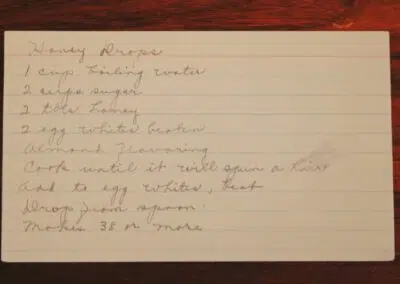 Honey Drops
1 cup boiling water
2 cups sugar
2 tbls honey
2 egg whites beaten
Almond Flavoring
Cook until it will spin a hair
Add to egg whites, beat
Drop from spoon.
Makes 38 or more